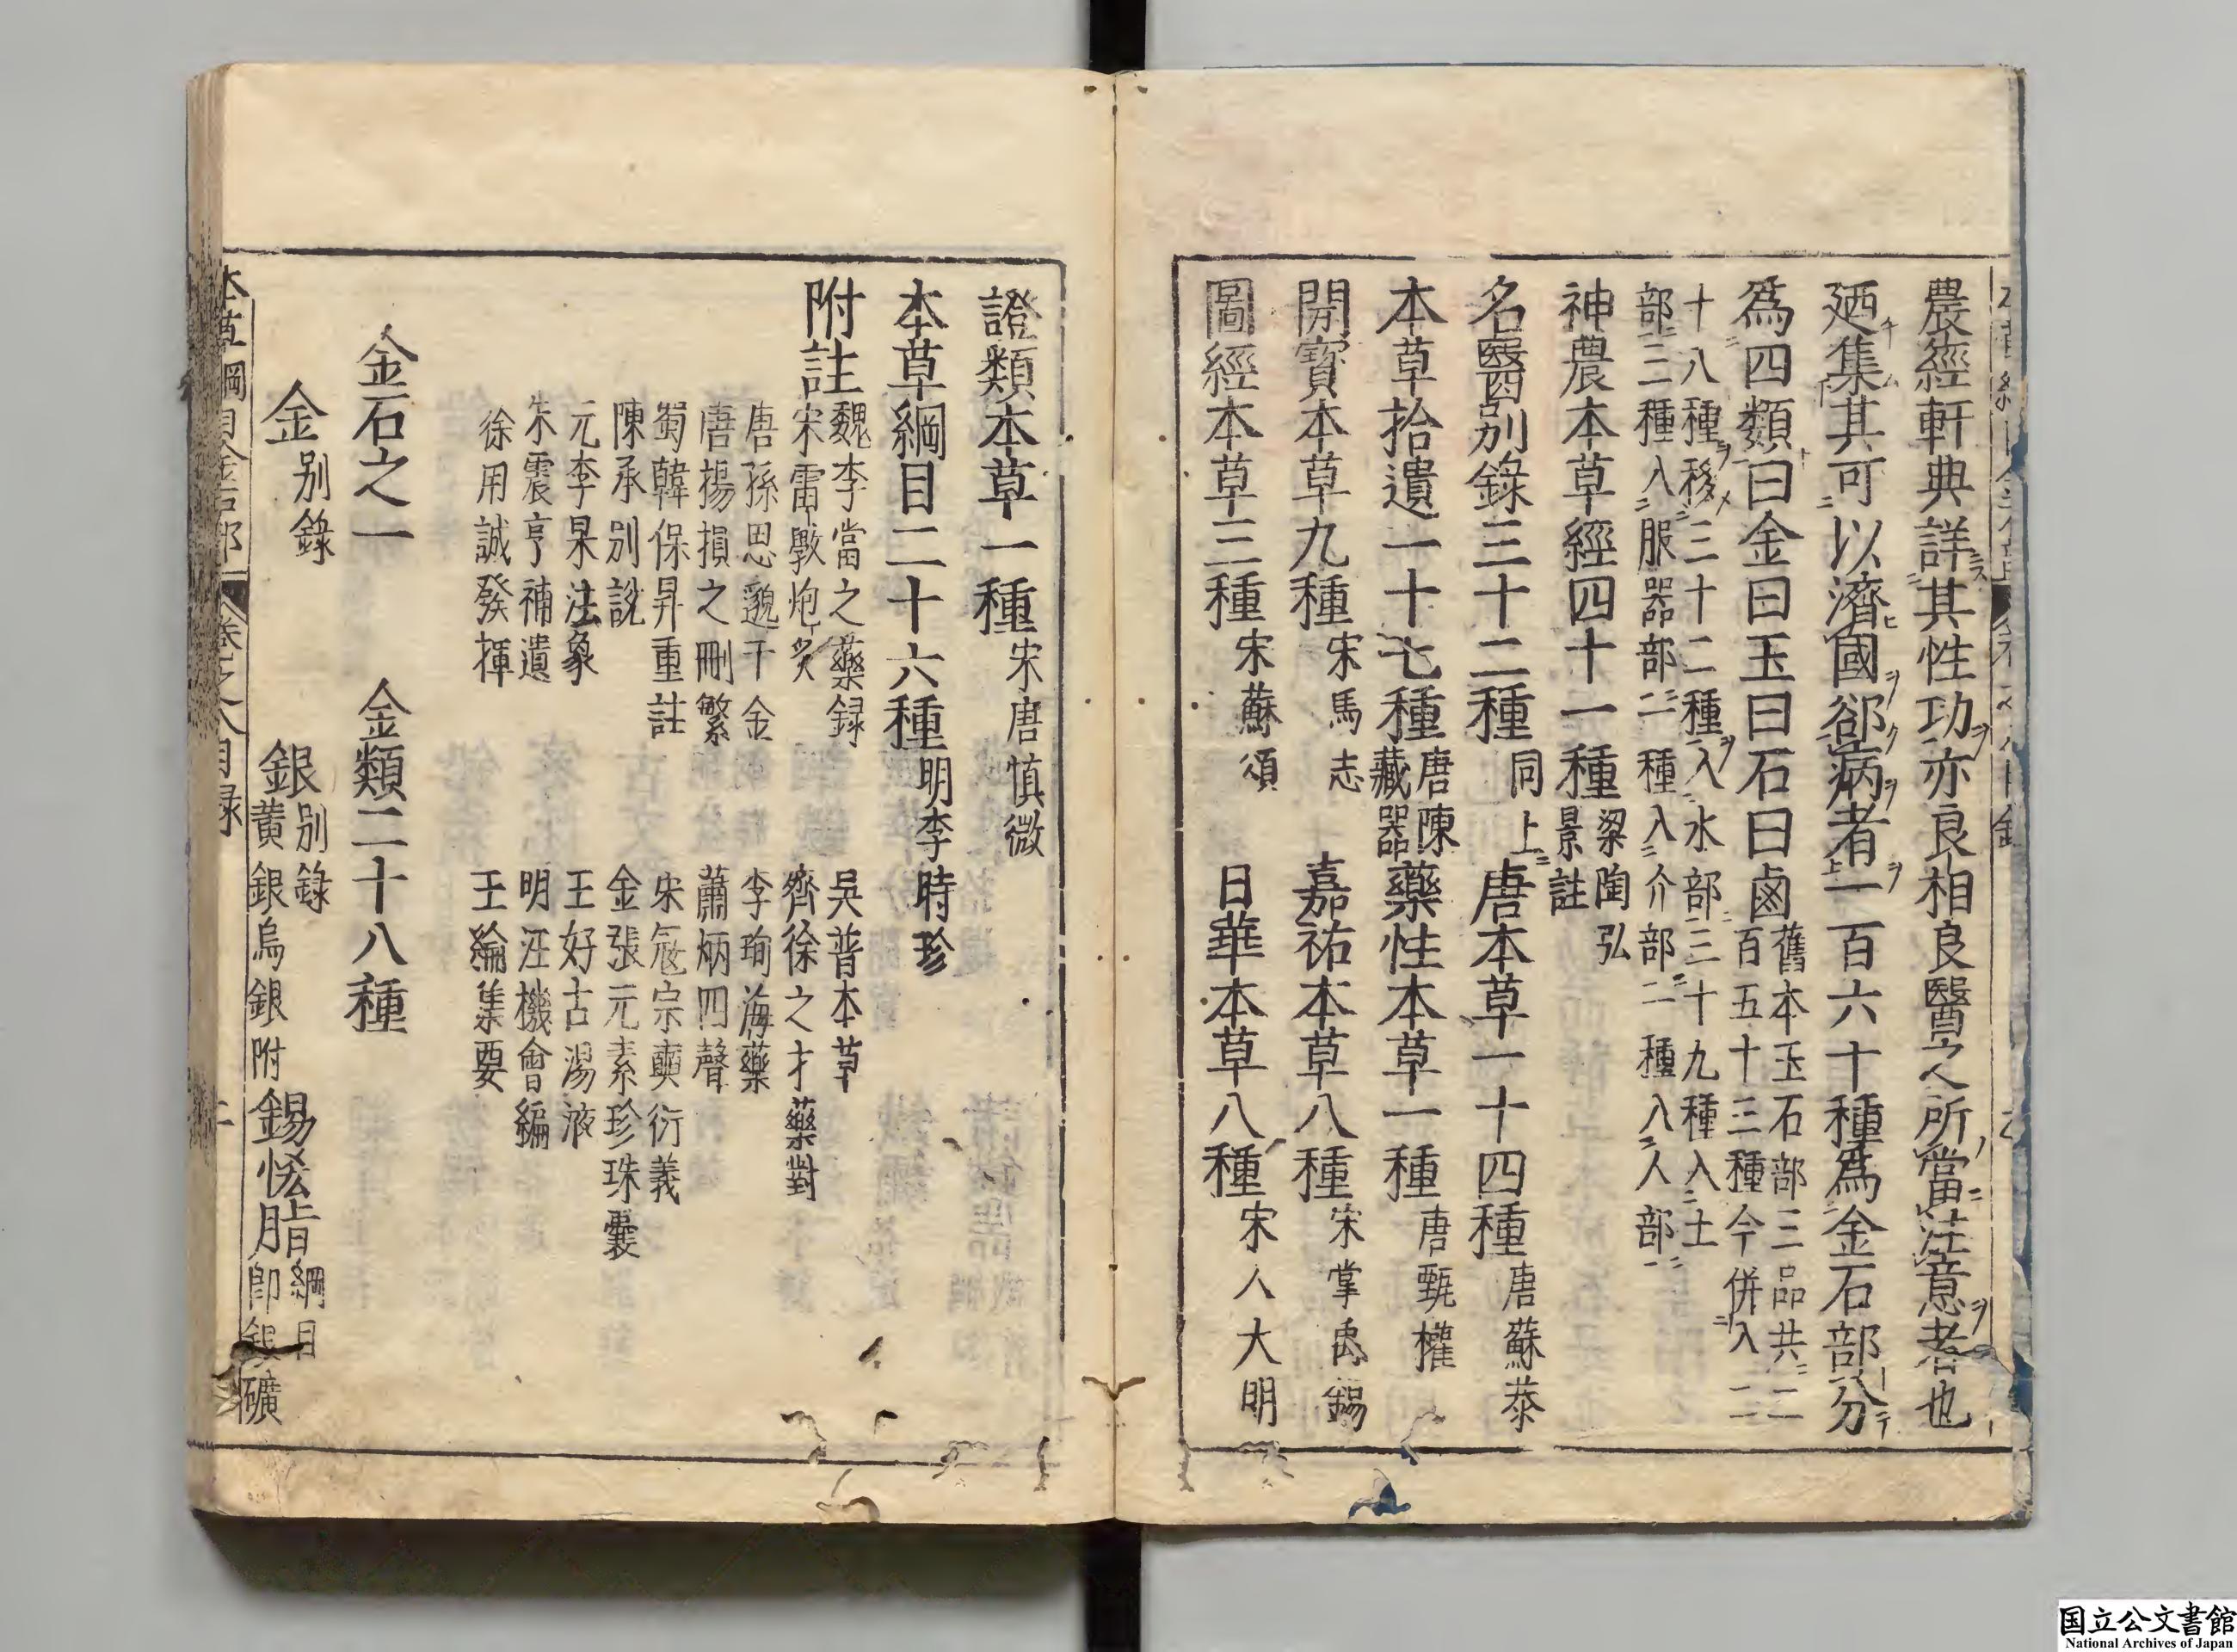 農經軒典詳其性功亦良相良醫之所當注意者也
廼集其可以濟國卻病者一百六十種爲金石部分
爲四類曰金曰玉曰石曰鹵
舊本玉石部三品共二
百五十三種今併入二
十八種移三十二種入水部三十九種入土
部三種入服器部二種入介部二種入人部一
神農本草經四十一種
梁陶弘
景註
名醫別錄三十二種 同上
唐本草一十四種 唐蘇恭
本草拾遺一十七種
唐陳
藏器
藥性本草一種 唐甄權
開寶本草九種 宋馬志
嘉祐本草八種 宋掌禹錫
圖經本草三種 宋蘇頌
日華本草八種 宋人大明
證類本草一種 宋唐慎微
本草綱目二十六種 明李時珍
附註
魏李當之藥録 吳普本草
宋雷斆炮炙 齊徐之才藥對
唐孫思邈千金 李珣海藥
唐楊損之刪繁 蕭炳四聲
蜀韓保昇重註 宋寇宗奭衍義
陳承別說 金張元素珍珠囊
元李杲法象 王好古湯液
朱震亨補遺 明汪機會編
徐用誠發揮 王綸集要
金石之一 金類二十八種
金 别錄
銀 别錄
黄銀烏銀附
錫恡脂 綱目
卽銀礦
本草綱目金石部 卷之八目録
國立公文書館
National Archives of Japan